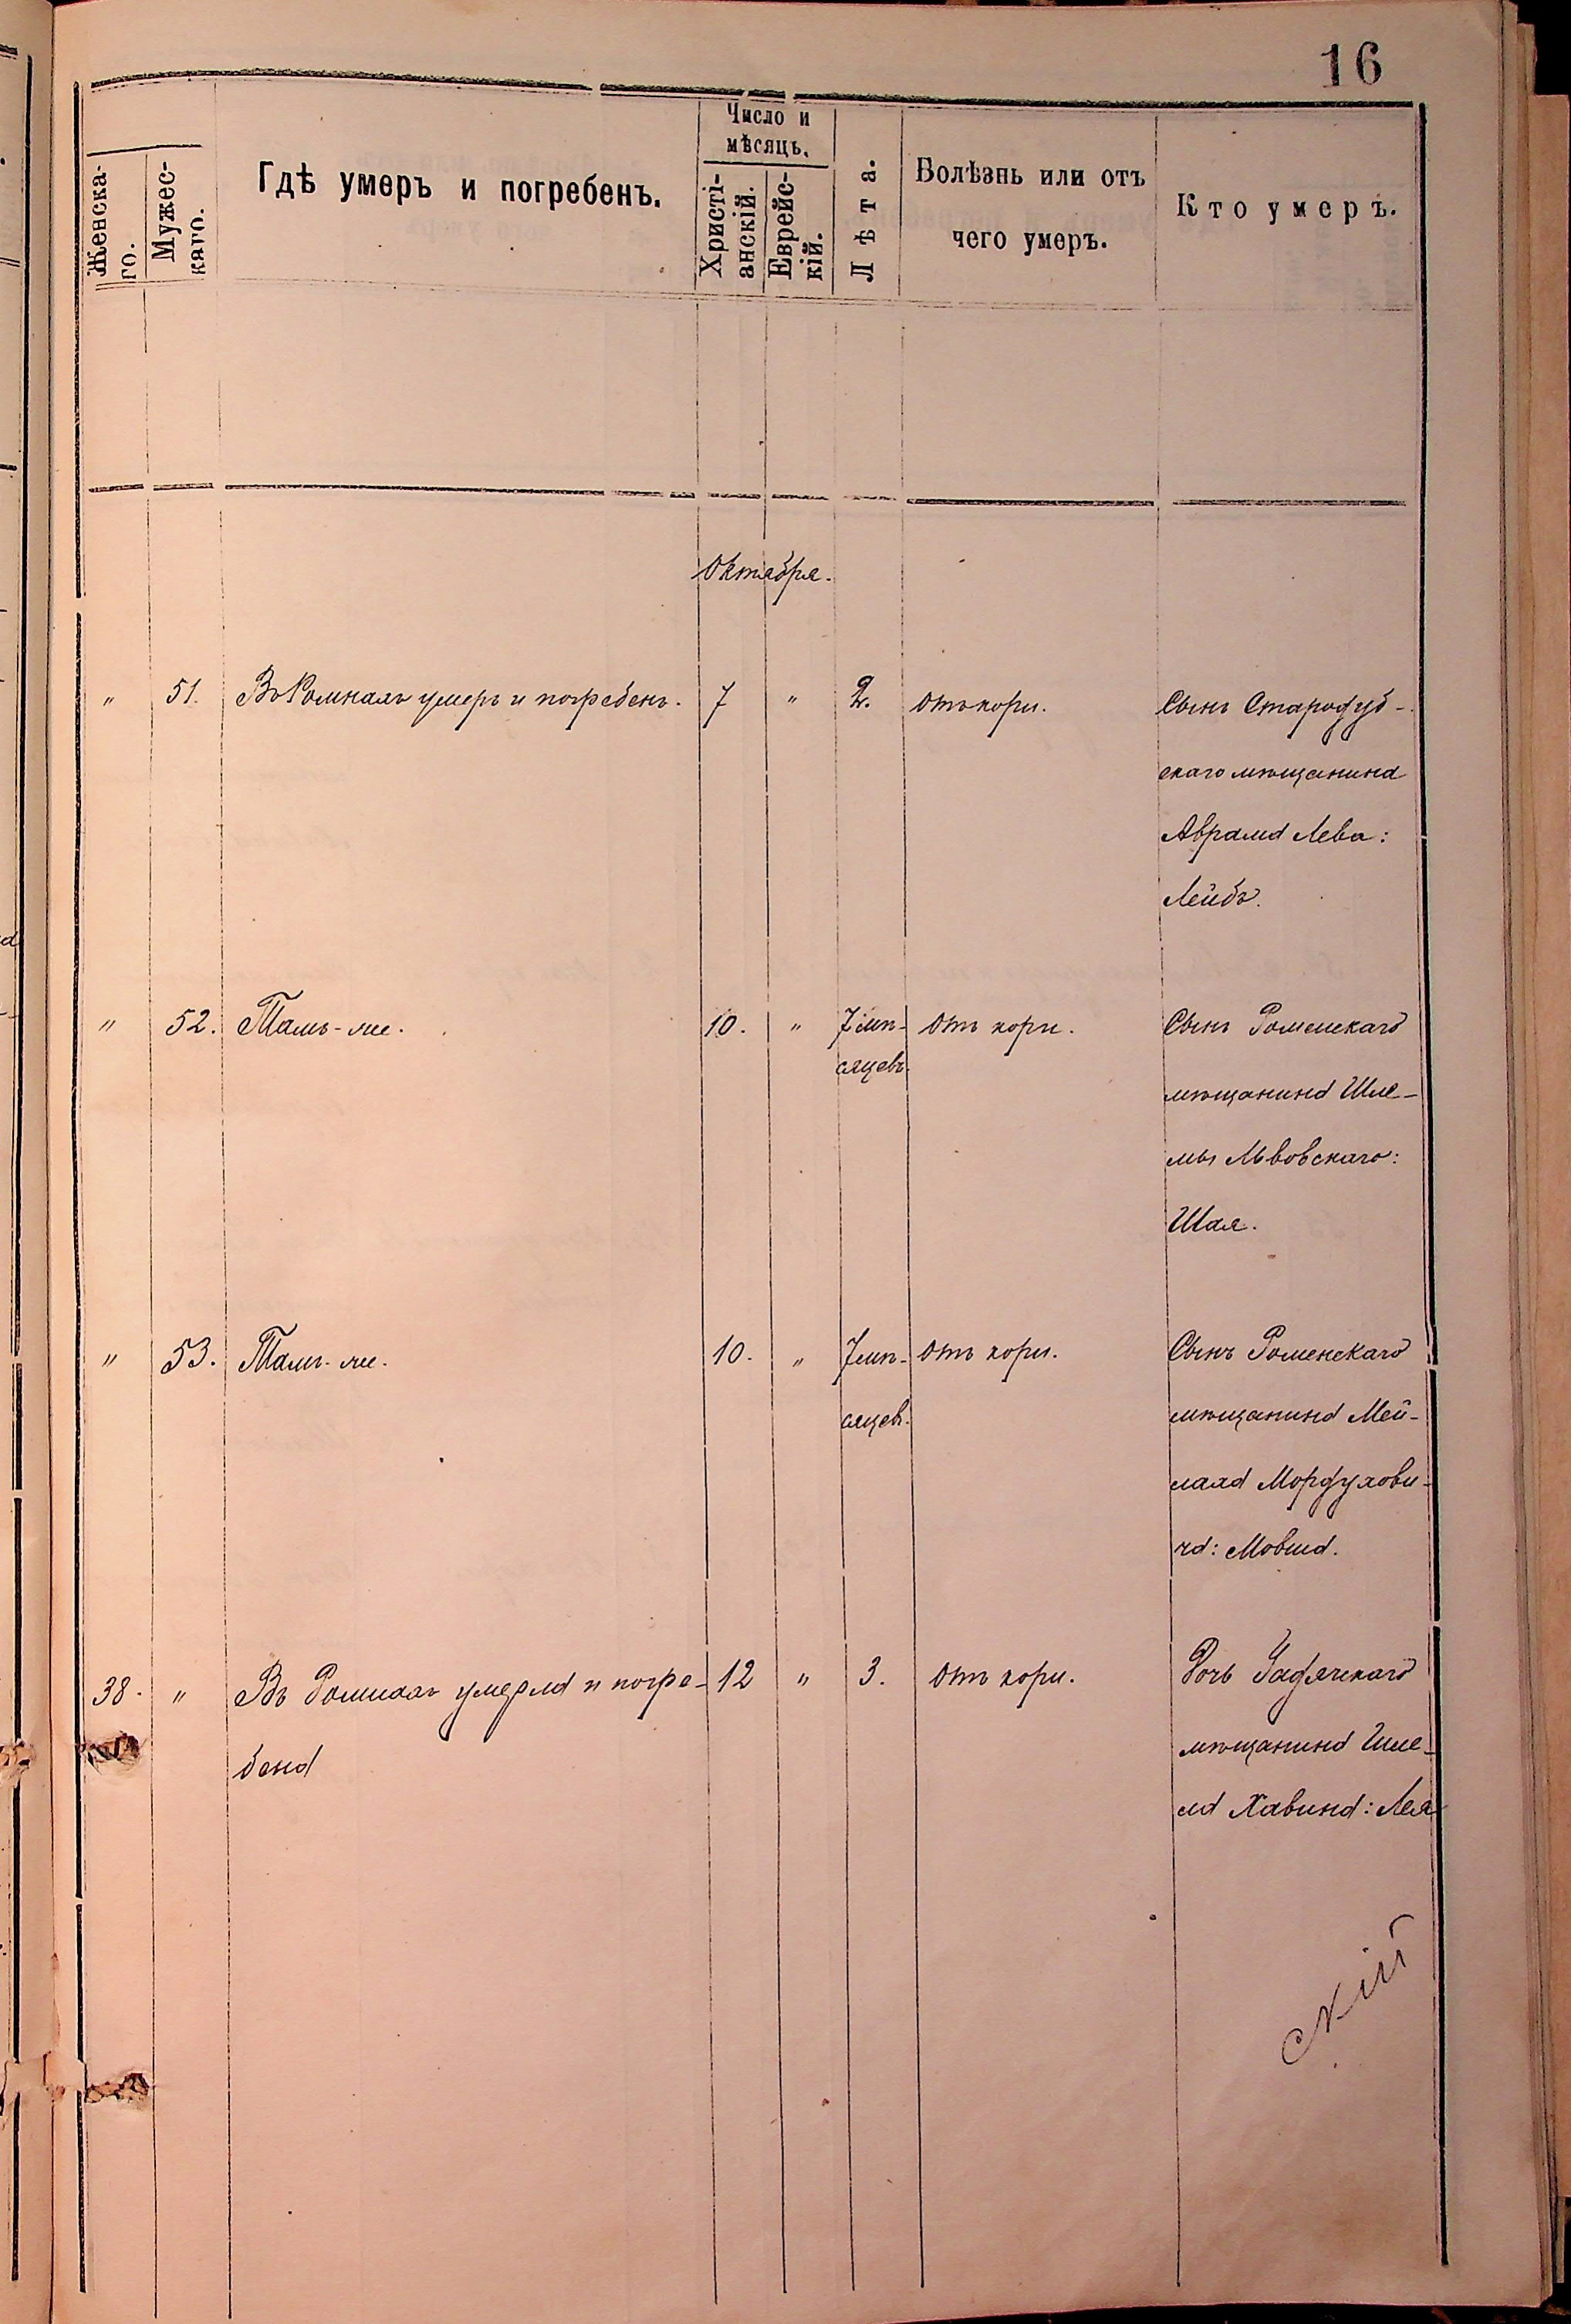 16
Женска-
го.
Мужес-
каго.
Гдѣ умеръ и погребенъ.
Число и
мѣсяцъ.
Христі-
анскій.
Еврейс-
кій.
Лѣта.
Болѣзнь или отъ
чего умеръ.
Кто умеръ.
Октября.
" 51. Въ Ромнахъ умеръ и погребенъ. 7 " 2. отъ кори. Сынъ Стародуб-
скаго мѣщанина
Аврама Лева:
Лейбъ.
" 52. Тамъ-же. 10. " 7 мѣ- отъ кори. Сынъ Роменскаго
сяцевъ.
мѣщанина Шле-
мы Львовскаго:
Шая.
" 53. Тамъ-же. 10. " 7 мѣ- отъ кори. Сынъ Роменскаго
сяцевъ. мѣщанина Мей-
лаха Мордухови-
ча: Мовша.
38. " Въ Ромнахъ умерла и погре- 12 " 3. отъ кори. Дочь Гадячскаго
бена
мѣщанина Шме-
ла Хавина: Лея
скій